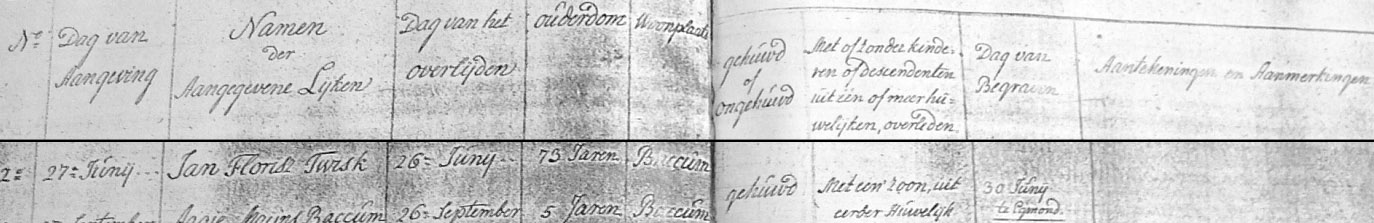 No. Dag van Aangeving
Namen der Aangegevene Lijken
Dag van het overlijden
ouderdom
Woonplaats
gehuwd of ongehuwd
Met of zonder kinde-
ren of descendenten
uit één of meer hu-
welijken, overleden
Dag van Begraven
Aantekeningen en Aanmerkingen
2= 27= Junij Jan Florisz Twisk 26= Junij 73 Jaren Baccum gehuwd Met een zoon, uit eerder Huwelijk 30 Junij te Egmond
September Aagje Baccum 26= September 5 Jaren Baccum